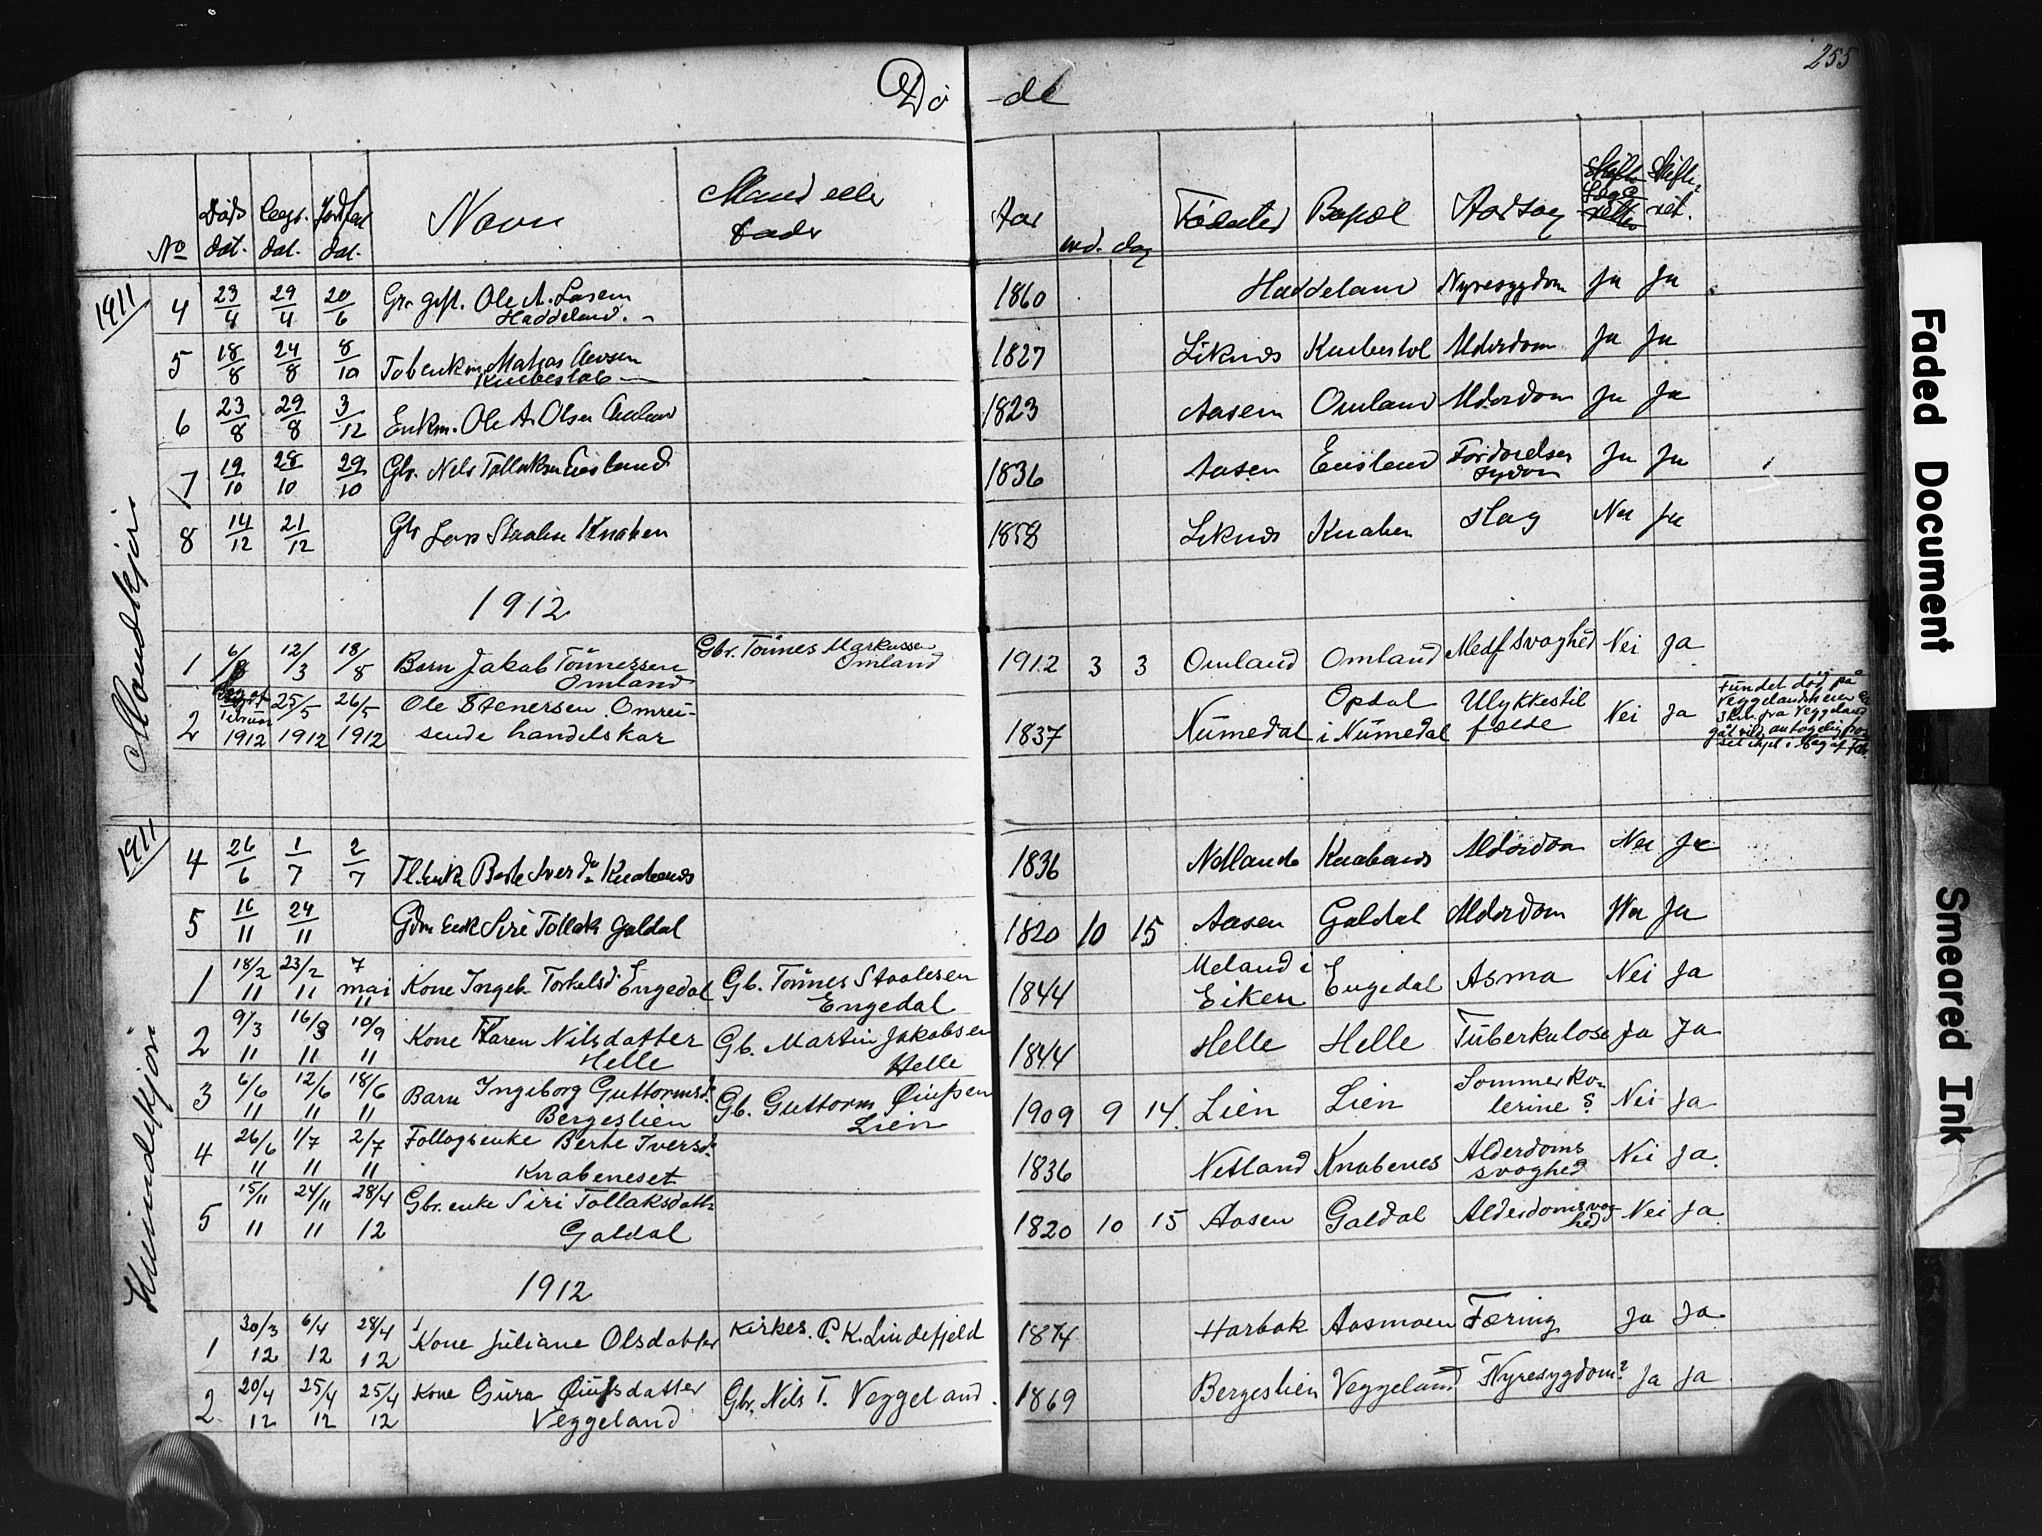 255
Dö-de
No Døds dat. Begr. dat. Jordfast dat. Navn Mand eller Fader Aar md. dag Fødested Bopæl Aarsag Skifte? ret.
1911
Mandkjøn
4 23/4 29/4 20/6 Gr. gift. Ole A. Lasen 1860 Haddeland Nyresygdom Ja Ja
Haddeland.
5 18/8 24/8 8/10 Enkm. Mathias 1827 Liknes Knabestol Alderdom Ja Ja
6 23/8 29/8 3/12 Enkm. Ole A. Olsen Omland 1823 Aasen Omland Alderdom Ja Ja
7 19/10 28/10 29/10 Gbr. Nels Tollaksen Eiesland 1836 Aasen Eiesland Fordøielses Ja Ja
sydom
8 14/12 21/12 Gbr Lars Staalese Knaben 1858 Liknes Knaben slag Nei Ja
1912
1 6/3 12/3 18/8 Barn Jakob Tönnessen Gbr. Tönnes Markussen 1912 3 3 Omland Omland Medf. svaghed Nei Ja
Omland Omland
2 Beg. af Februar 1912 25/5 1912 26/5 1912 Ole Stenersen. Omrei- 1837 Numedal Opdal Ulykkestil Nei Ja Fundet död på
sende handelskar i Numedal fælde Veggelandsheien
fra Veggeland
gåt vild antagelig
ihjel i Beg af Feb.
1911
Kvindekjön
4 26/6 1/7 2/7 Fl. enke Berte Iversd. Knabenes 1836 Netland Knabenes Alderdom Nei Ja
5 16/11 24/11 Gbr. Enke Siri Tollaks Galdal 1820 10 15 Aasen Galdal Alderdom Nei Ja
1 18/2 11 23/2 11 7 mai 11 Kone Ingeb. Torkelsd. Engedal Gb. Tönnes Staalesen 1844 Meland i Engedal Asma Nei Ja
Engedal Eiken
2 9/3 11 16/3 11 10/9 11 Kone Karen Nilsdatter Gb. Martin Jakobsen 1844 Helle Helle Tuberkulose Ja Ja
Helle Helle
3 6/6 11 12/6 11 18/6 11 Barn Ingeborg Guttormsd. Gb. Guttorm Øiufsen 1909 9 14. Lien Lien Sommerko- Nei Ja
Bergeslien Lien lerine?
4 26/6 11 1/7 11 2/7 11 Follogsenke Berte Iversd. 1836 Netland Knabenes Alderdoms Nei Ja.
Knabeneset svaghed
5 15/11 11 24/11 11 28/4 12 Gbr. enke Siri Tollaksdatt. 1820 10 15 Aasen Galdal Alderdomsvag- Nei Ja
Galdal hed
1912
1 30/3 12 6/4 12 28/4 12 Kone Juliane Olsdatter Kirkes. P. K. Lindefjeld 1874 Harbak Aasmoen Tæring Ja Ja
2 20/4 12 25/4 12 25/4 12 Kone Gura Øiufsdatter Gbr. Nils T. Veggeland. 1869 Bergeslien Veggeland Nyresygdom? Ja Ja
Veggeland
Faded Document
Smeared Ink